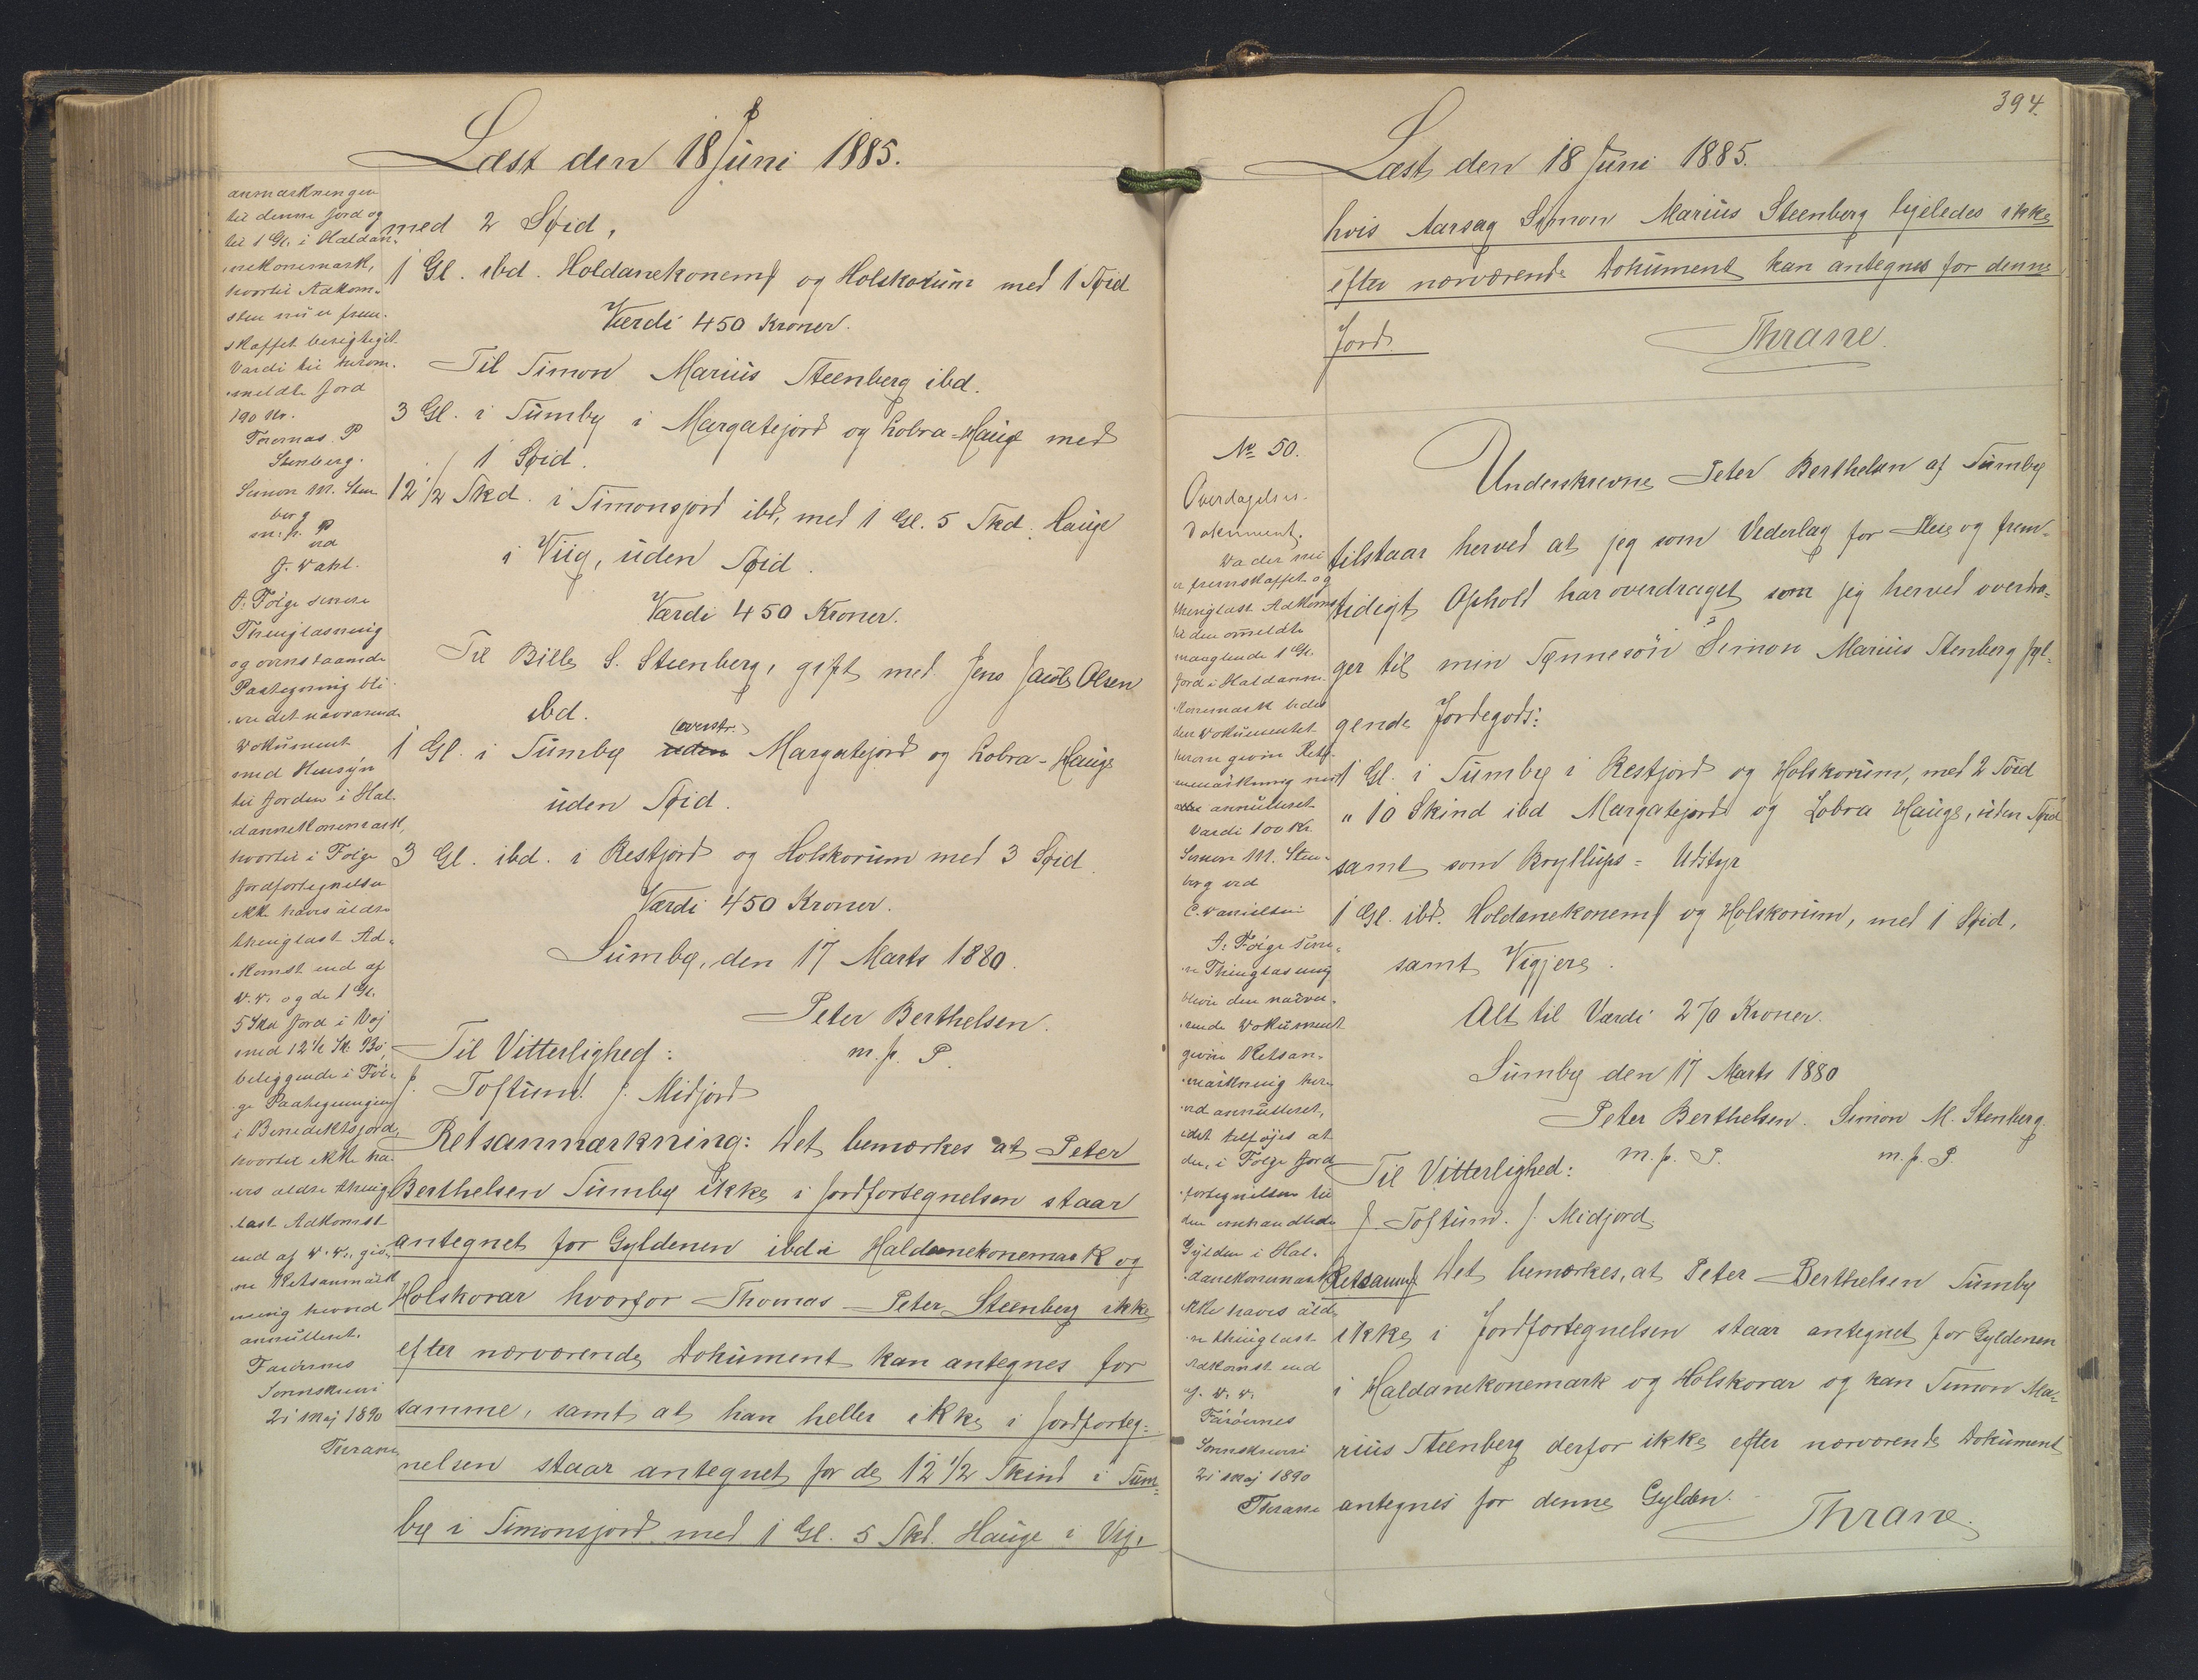 Læst den 18 Juni 1885.
anmærkningen
til denne Jord og
til 1 Gl. i Haldan-
nekonemark,
hvortil Adkom-
sten nu er frem-
skaffet berigtiget.
Værdi til hirom-
meldte Jord
190 Kr.
Thomas P
Stenberg.
Simon M. Sten
berg
m. p. P
ved
J. Dahl.
I Følge senere
Thinglæsning
og ovenstaaende
Paategning bli-
ver det nærværende
Dokument
med Hensyn
til Jorden i Hal-
dannekonemark,
hvortil i Følge
Jordfortegnelsen
ikke haves ældre
thinglæst Ad-
komst end af
D. D. og de 1 Gl.
5 Skd Jord i Vaj
med 12½ Sk. Bø,
beliggende i Føl-
ge Paategningen
i Benediktsjord,
hvortil ikke ha-
ves ældre thing
læst Adkomst
end af D. D., giv-
ne Retsanmærk
ning herved
annulleret.
Færøernes
Sorenskriveri
21 Maj 1890
Thrane
med 2 Søid,
1 Gl. ibd. Holdanekonemk og Holskorum med 1 Søid
Værdi 450 Kroner.
Til Simon Marius Steenberg ibd.
3 Gl. i Sumby i Margatejord og Lobra-Hauge med
1 Søid.
12½ Skd. i Simonsjord ibd, med 1 Gl. 5 Skd. Hauge
i Viig, uden Søid.
Værdi 450 Kroner.
Til Bille S. Steenberg, gift med Jens Jacob Olsen
ibd.
(overstr.)
1 Gl. i Sumby uden Margatejord og Lobra-Hauge
uden Søid.
3 Gl. ibd. i Restjord og Holskorum med 3 Søid.
Værdi 450 Kroner.
Sumby, den 17 Marts 1880.
Peter Berthelsen.
m. p. P.
Til Vitterlighed:
J. Toftum. J. Midjord
Retsanmærkning: Det bemærkes at Peter
Berthelsen Sumby ikke i Jordfortegnelsen staar
antegnet for Gyldenen ibd i Haldanekonemark og
Holskorar hvorfor Thomas Peter Steenberg ikke
efter nærværende Dokument kan antegnes for
samme, samt at han heller ikke i Jordforteg-
nelsen staar antegnet for de 12½ Skind i Sum-
by i Simonsjord med 1 Gl. 5 Skd. Hauge i Vig,
394.
Læst den 18 Juni 1885.
hvis Aarsag Simon Marius Steenberg ligeledes ikke
efter nærværende Dokument kan antegnes for denne
Jord.
Thrane.
№ 50.
Overdragelses-
Dokument.
Da der nu
er fremskaffet og
thinglæst Adkomst
til den ommeldte
manglende 1 Gl.
Jord i Haldanne-
konemark bedes
den Dokumentet
herom givne Rets-
anmærkning
annulleret
Værdi 100 Kr
Simon M. Sten-
berg ved
C. Danielsen
I Følge sene-
re Thinglæsning
bliver den nærvæ-
rende Dokument
givne Retsan-
mærkning her-
ved annulleret,
idet tilføjes at
der, i Følge Jord
fortegnelsen til
den omhandlede
Gylden i Hal-
danekonemark
ikke haves æld-
re thinglæst
Adkomst end
af D. D.
Færøernes
Sorenskriveri
21 Maj 1890
Thrane
Underskrevne Peter Berthelsen af Sumby
tilstaar herved at jeg som Vederlag for Pleie og frem-
tidigt Ophold har overdraget som jeg herved overdra-
ger til min Sønnesøn Simon Marius Stenberg føl-
gende Jordegods:
1 Gl. i Sumby i Restjord og Holskorum, med 2 Søid
" 10 Skind ibd Margatejord og Lobra Hauge, uden Søid
samt som Bryllups-Udstyr
1 Gl. ibd. Holdanekonemk og Holskorum, med 1 Søid,
samt Vigjere.
Alt til Værdi 270 Kroner.
Sumby den 17 Marts 1880
Peter Berthelsen. Simon M. Stenberg.
m. p. P. m. p. P.
Til Vitterlighed:
J. Toftum. J. Midjord.
Retsanmk Det bemærkes, at Peter Berthelsen Sumby
ikke i Jordfortegnelsen staar antegnet for Gyldenen
i Haldanekonemark og Holskorar og kan Simon Ma-
rius Steenberg derfor ikke efter nærværende Dokument
antegnes for denne Gylden.
Thrane.